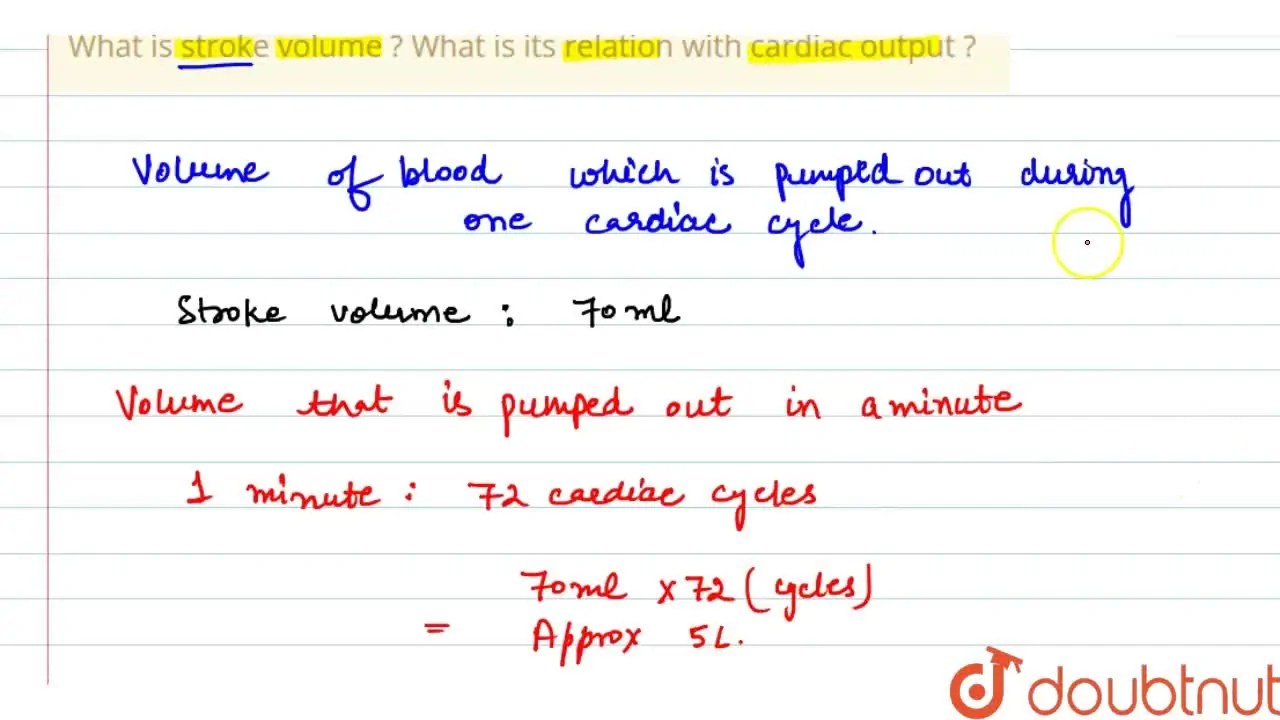 What is stroke volume ? What is its relation with cardiac output ?
Volume of blood which is pumped out during
one cardiac cycle.
Stroke volume : 70 ml
Volume that is pumped out in a minute
1 minute : 72 cardiac cycles
70ml x 72 ( cycles)
= Approx 5L.
doubtnut